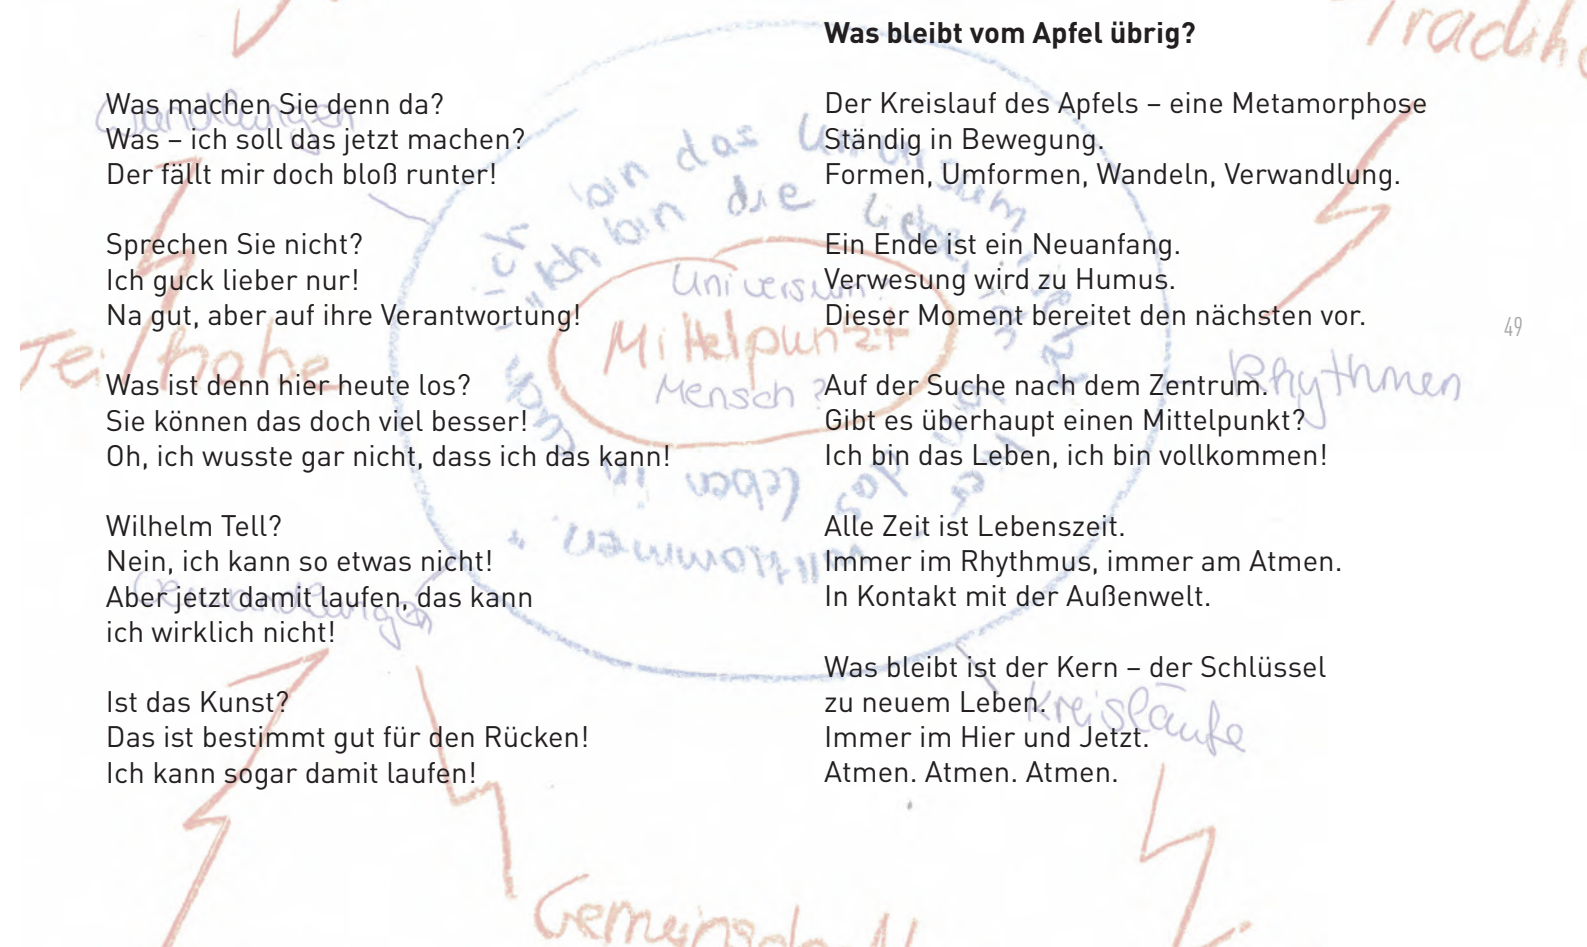 Was machen Sie denn da?
Was – ich soll das jetzt machen?
Der fällt mir doch bloß runter!
Sprechen Sie nicht?
Ich guck lieber nur!
Na gut, aber auf ihre Verantwortung!
Was ist denn hier heute los?
Sie können das doch viel besser!
Oh, ich wusste gar nicht, dass ich das kann!
Wilhelm Tell?
Nein, ich kann so etwas nicht!
Aber jetzt damit laufen, das kann
ich wirklich nicht!
Ist das Kunst?
Das ist bestimmt gut für den Rücken!
Ich kann sogar damit laufen!
Was bleibt vom Apfel übrig?
Der Kreislauf des Apfels – eine Metamorphose
Ständig in Bewegung.
Formen, Umformen, Wandeln, Verwandlung.
Ein Ende ist ein Neuanfang.
Verwesung wird zu Humus.
Dieser Moment bereitet den nächsten vor.
Auf der Suche nach dem Zentrum.
Gibt es überhaupt einen Mittelpunkt?
Ich bin das Leben, ich bin vollkommen!
Alle Zeit ist Lebenszeit.
Immer im Rhythmus, immer am Atmen.
In Kontakt mit der Außenwelt.
Was bleibt ist der Kern – der Schlüssel
zu neuem Leben.
Immer im Hier und Jetzt.
Atmen. Atmen. Atmen.
49
Wandlungen
Teilhabe
Universum?
Mittelpunkt
Mensch?
Rhythmen
Kreisläufe